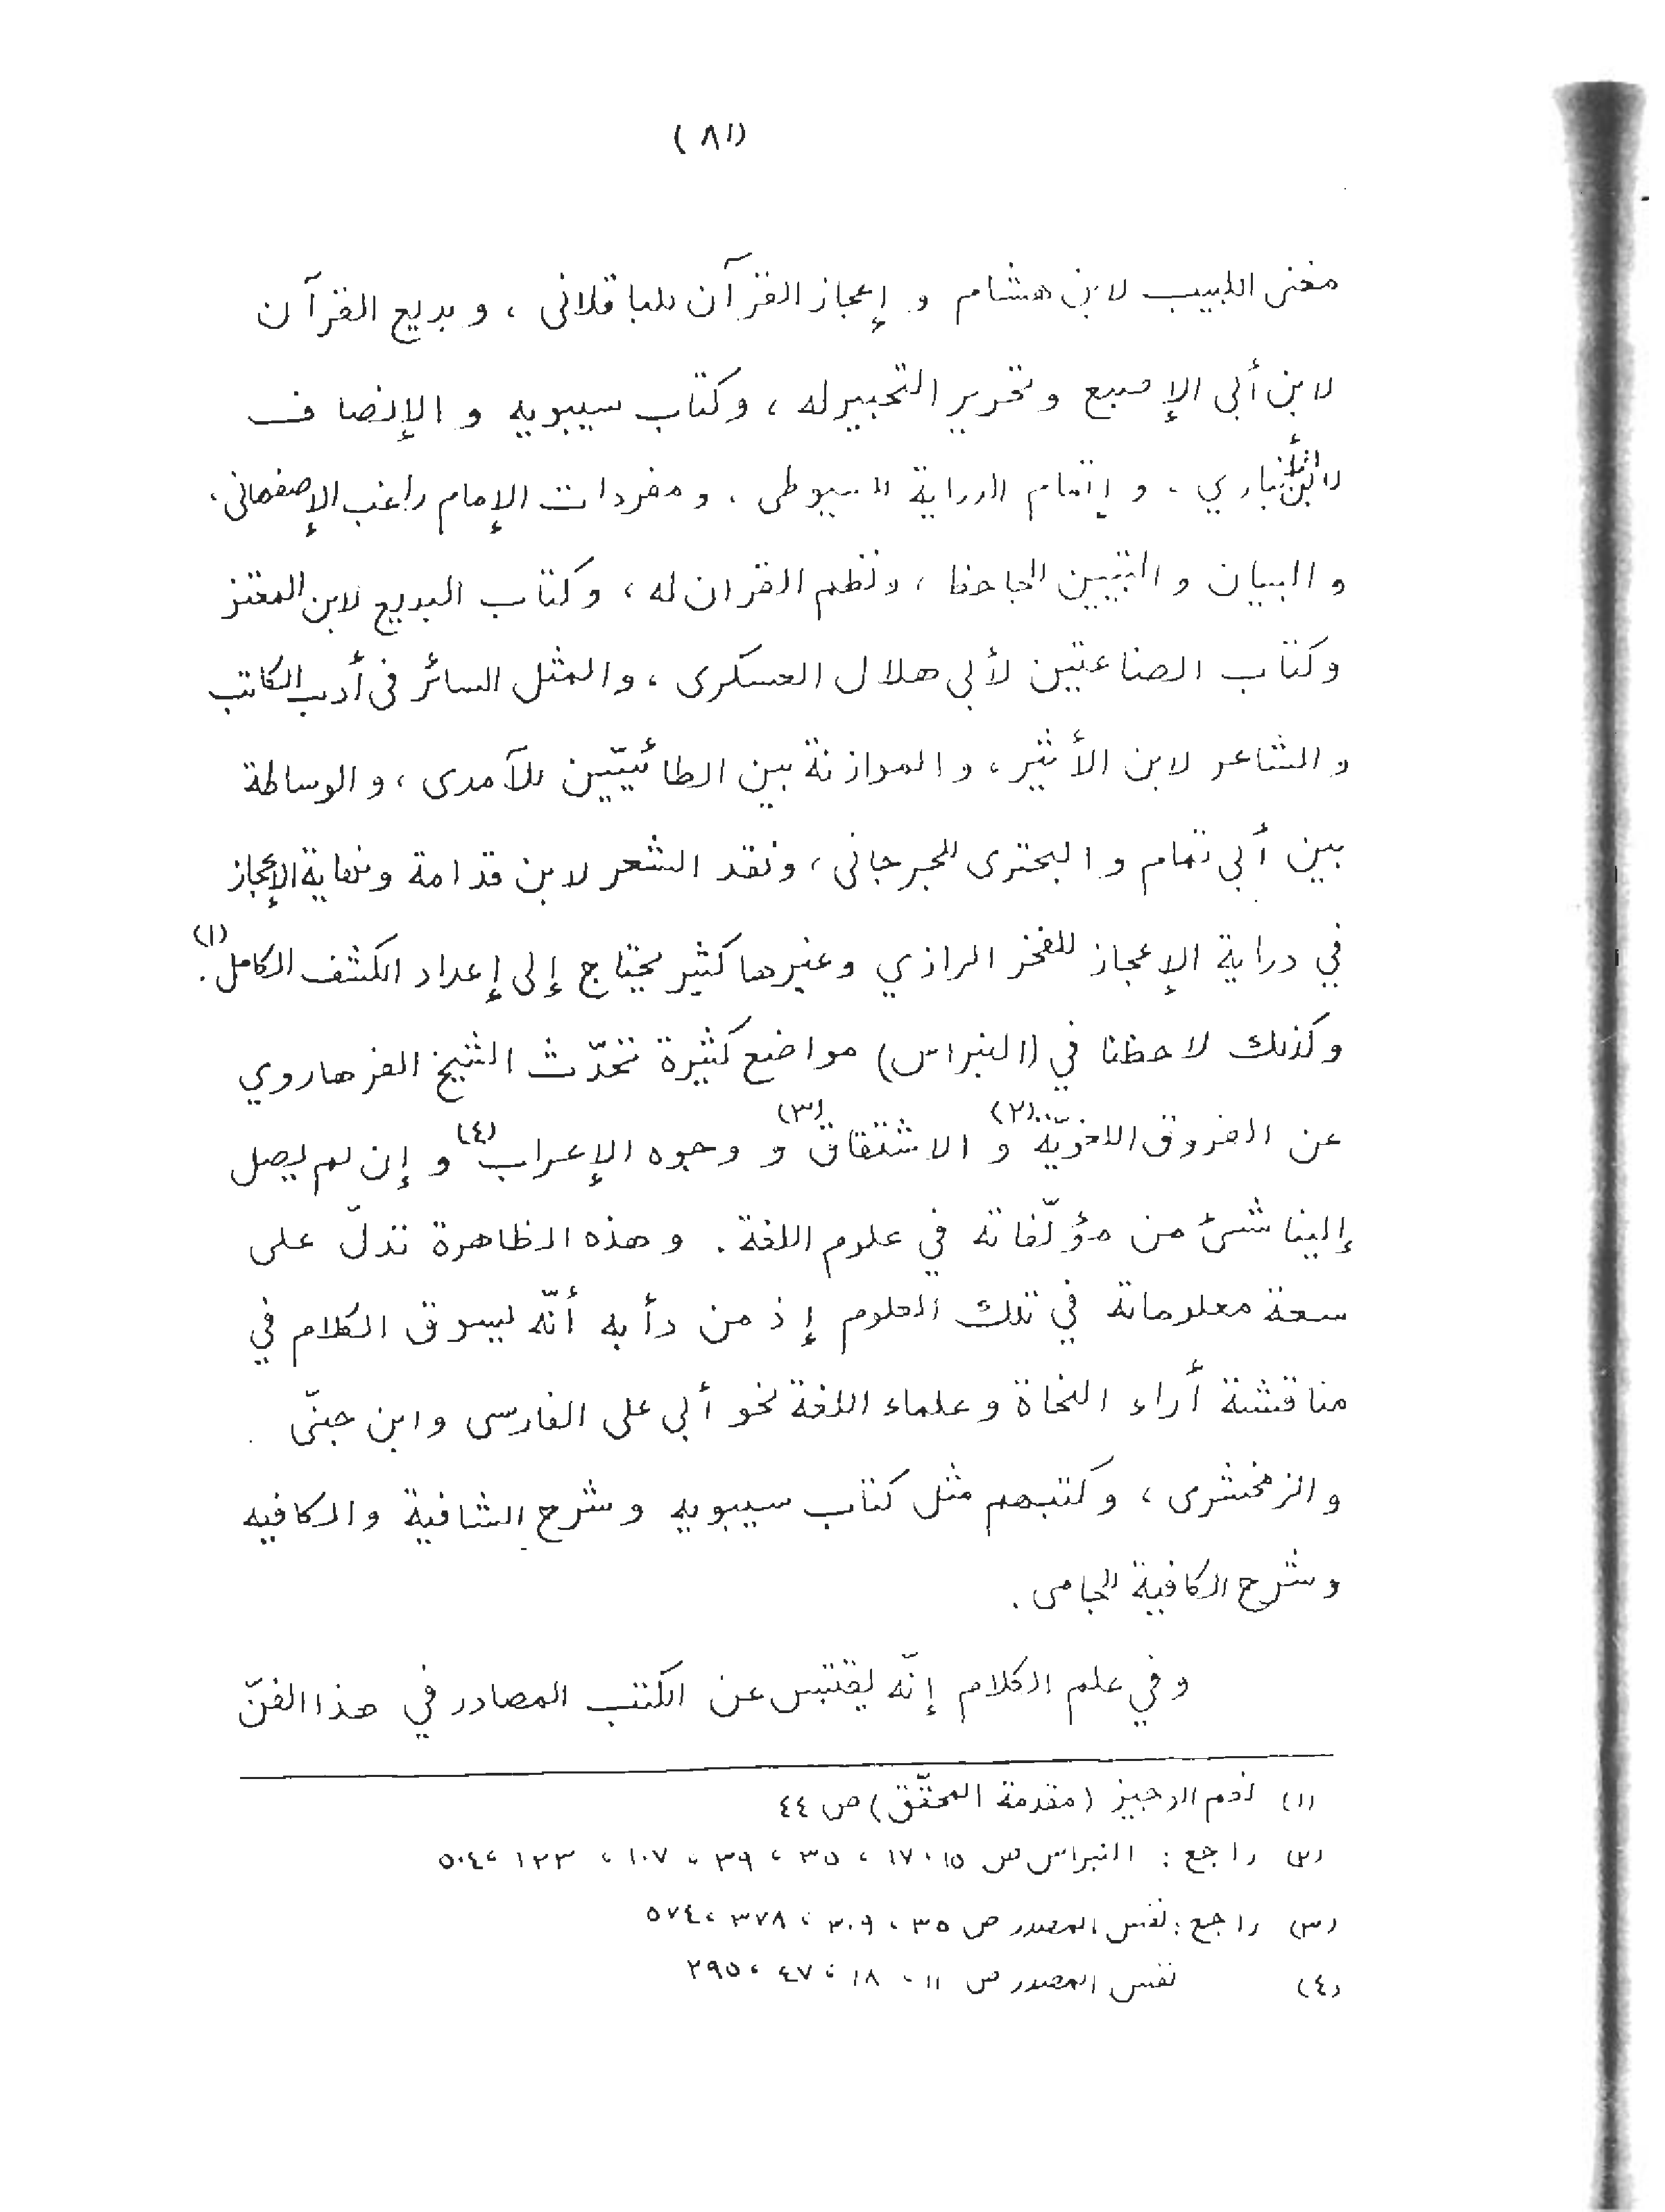 (٨١)
مغنى اللبيب لابن هشام و إعجاز القرآن للباقلانى ، و بديع القرآن
لابن أبى الإصبع وتحرير التحبير له ، وكتاب سيبويه و الإنصاف
لابن الأنباري ، و إتمام الدراية للسيوطى ، ومفردات الإمام راغب الإصفهانى ،
و البيان و التبيين للجاحظ ، ونظم القران له ، وكتاب البديع لابن المعتز
وكتاب الصناعتين لأبى هلال العسكرى ، والمثل السائر فى أدب الكاتب
و الشاعر لابن الأثير ، و الموازنة بين الطائيّين للآمدى ، و الوساطة
بين أبى تمام و البحترى للجرجانى ، ونقد الشعر لابن قدامة ونهاية الإيجاز
في دراية الإعجاز للفخر الرازي وغيرها كثير يحتاج إلى إعداد الكشف الكامل (١) .
وكذلك لاحظنا في (النبراس) مواضع كثيرة تحدّث الشيخ الفرهاروي
عن الفروق اللغويّة (٢) و الاشتقاق (٣) و وجوه الإعراب (٤) و إن لم يصل
إلينا شىئ من مؤلّفاته في علوم اللغة . و هذه الظاهرة تدلّ على
سعة معلوماته في تلك العلوم إذ من دأبه أنّه يسوق الكلام في
مناقشة أراء النحاة وعلماء اللغة نحو أبى على الفارسى وابن جنّى
والزمخشرى ، وكتبهم مثل كتاب سيبويه وشرح الشافية والكافيه
وشرح الكافية للجامى .
وفي علم الكلام إنّه يقتبس عن الكتب المصادر في هذا الفنّ
(١) نعم الوجيز (مقدمة المحقّق) ص ٤٤
(٢) راجع : النبراس ص ١٥ ، ١٧ ، ٣٥ ، ٣٩ ، ١٠٧ ، ١٢٣ ، ٥٠٤
(٣) راجع : نفس المصدر ص ٣٥ ، ٣٠٩ ، ٣٧٨ ، ٥٧٤
(٤) نفس المصدر ص ١١ ، ١٨ ، ٤٧ ، ٢٩٥